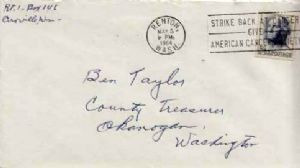 RT. 1 - Box 141
Oroville, Wn.
RENTON
MAY 5
PM
1964
WASH.
STRIKE BACK AT
GIVE
AMERICAN CANCER
Ben Taylor
County Treasurer
Okanogan,
Washington